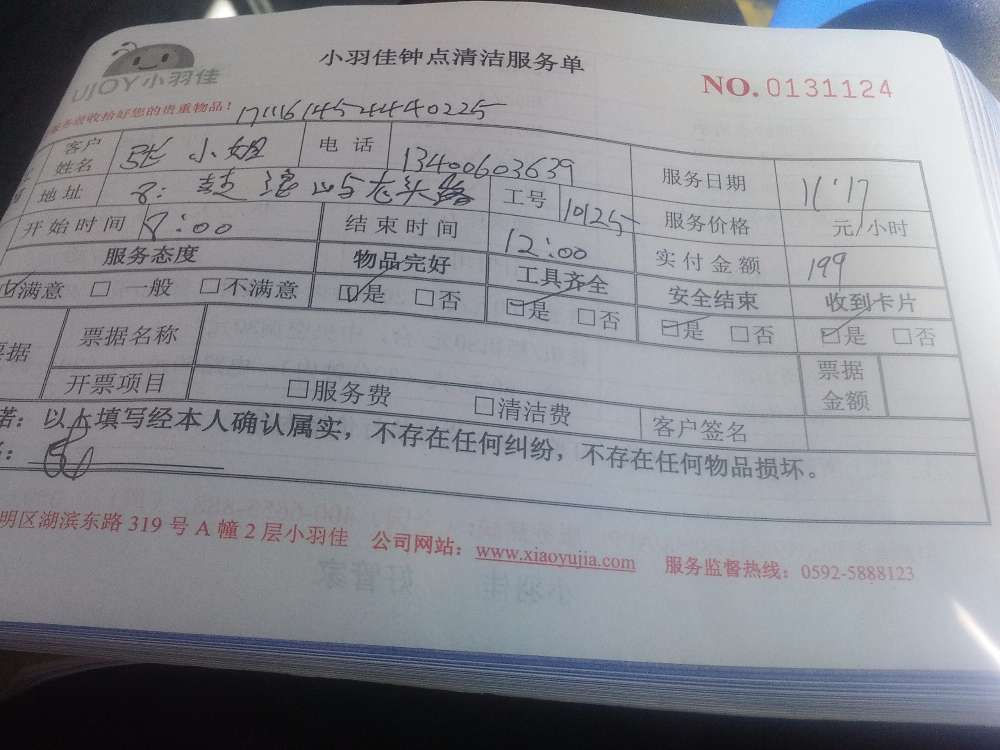 UJOY小羽佳
小羽佳钟点清洁服务单
NO.0131124
收拾好您的贵重物品!
17111614524440225
客户姓名 张小姐 电话 13400603639 服务日期 11.17
地址 鼓浪山 工号 10125 服务价格 元/小时
开始时间 8:00 结束时间 12:00 实付金额 199
服务态度 物品完好 工具齐全 安全结束 收到卡片
☑满意 □一般 □不满意 ☑是 □否 ☑是 □否 ☑是 □否 ☑是 □否
票据名称 票据金额
开票项目 □服务费 □清洁费 客户签名
若:以上填写经本人确认属实,不存在任何纠纷,不存在任何物品损坏。
明区湖滨东路319号A幢2层小羽佳 公司网站:www.xiaoyujia.com 服务监督热线:0592-5888123